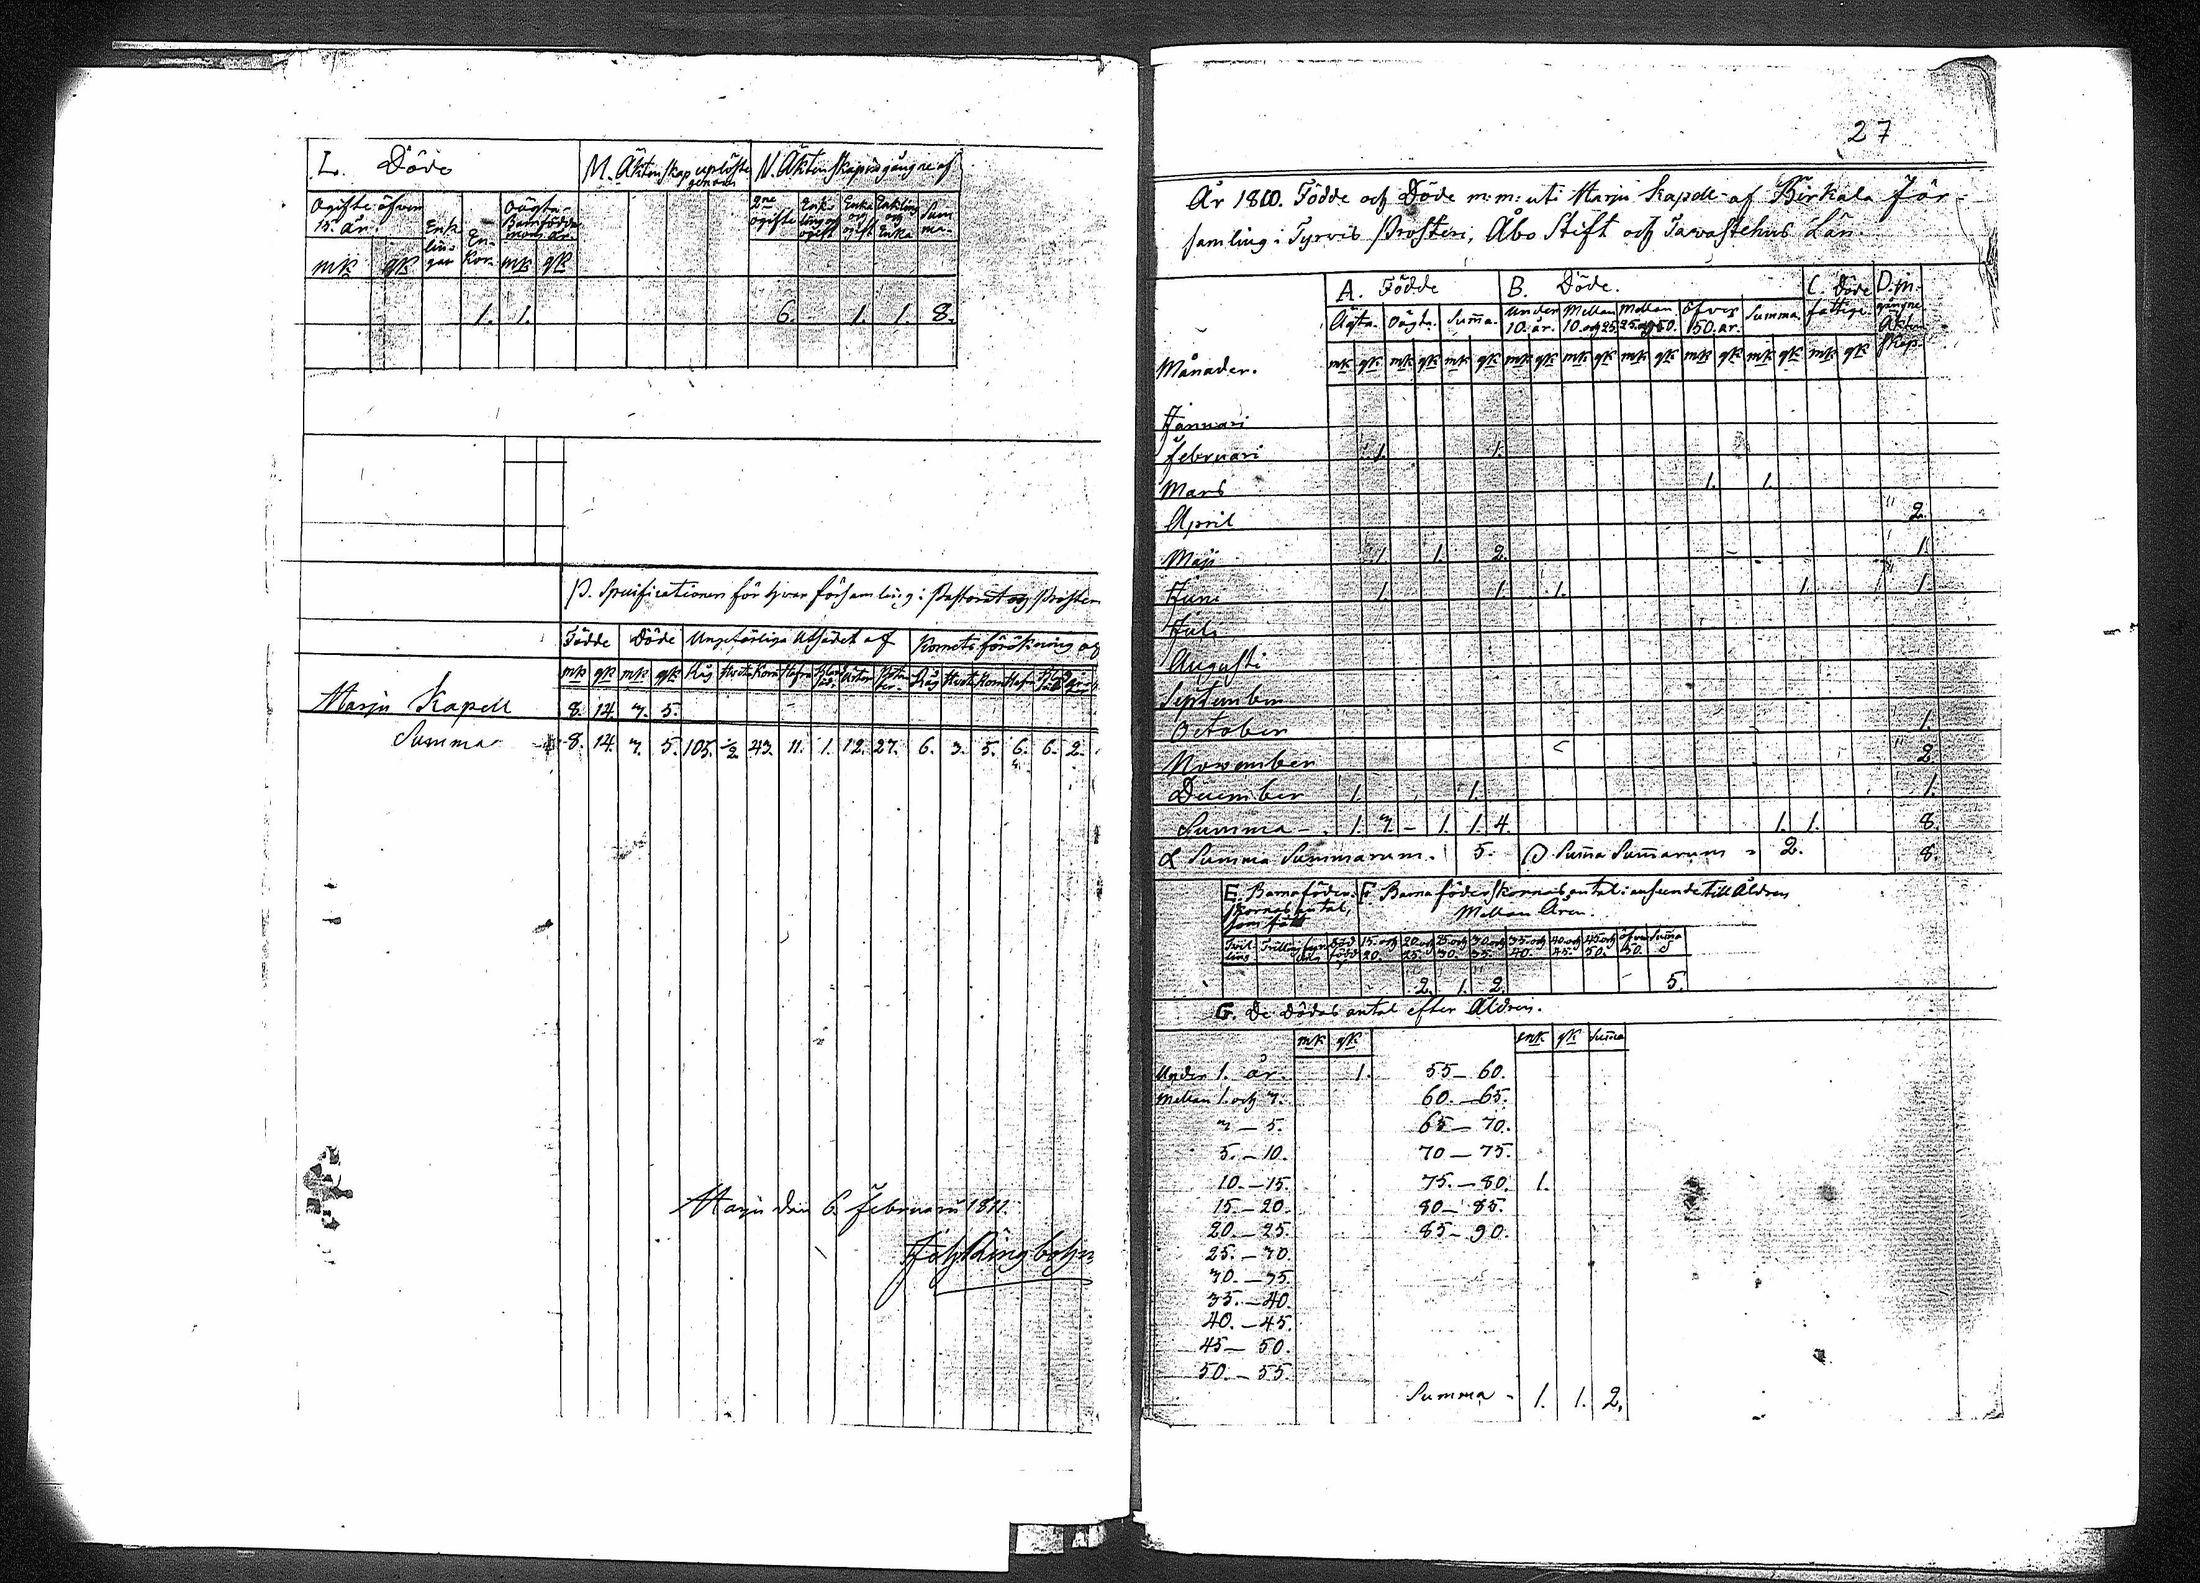 L. Döde
M. Äktenskap uplöste genom
N. Äktenskap ingångne af
Ogifte öfver 15. år.
Enklingar
Enkor
Oägta Barn
2ne ogifte
Enkling och ogift
Enka och ogift
Enkling och Enka
Summa.
mk qk mk qk
1. 1. 6. 1. 1. 8.
P. Specificationen för hvar församling i Pastorat och Prosteri
Födde Döde Ungefärliga Utsädet af Kornets förökning af
mk qk mk qk Råg Hvete Korn Hafra Ärter Råg Hvete Korn Hafra
Harju Kapell 8. 14. 7. 5.
Summa 8. 14. 7. 5. 105. ½ 43. 11. 1. 12. 27. 6. 3. 5. 6. 6. 2.
Harju den 6. Februarii 1811.
Joh Ringbohm
27
År 1810. Födde och Döde m: m: uti Harju Kapell af Birkala För-
samling i Tyrvis Prosteri, Åbo Stift och Tavastehus Län.
A. Födde B. Döde. C. Döde fattige D. Ingångne Äktenskap.
Ägta. Oägt. Summa. Under 10. år. Mellan 10. och 25. Mellan 25. och 50. Öfver 50. år. Summa.
Månader. mk qk mk qk mk qk mk qk mk qk mk qk mk qk mk qk mk qk
Januari
Februari 1. 1.
Mars 1. 1.
April 2.
Maji 1. 1. 2. 1.
Juni 1. 1. 1. 1. 1.
Juli
Augusti
September
October 1.
November 2.
December 1. 1. 1.
Summa - 1. 3. - 1. 1. 4. 1. 1. 8.
Summa Summarum. 5. Summa Summarum 2. 8.
E. Barnaföderskornas antal, som fått
F. Barnaföderskornas antal i anseende till Åldren
Mellan Åren.
Tvilling Trilling 15. och 20. 20. och 25. 25. och 30. 30. och 35. 35. och 40. 40. och 45. 45. och 50. öfver 50. Summa
2. 1. 2. 5.
G. De Dödas antal efter Åldren.
mk qk mk qk Summa
Under 1. år. 1. 55 - 60.
Mellan 1. och 3. 60. - 65.
3 - 5. 65 - 70.
5. - 10. 70 - 75.
10. - 15. 75. - 80. 1.
15. - 20. 80 - 85.
20. - 25. 85 - 90.
25. - 30.
30. - 35.
35. - 40.
40. - 45.
45 - 50.
50. - 55.
Summa - 1. 1. 2.